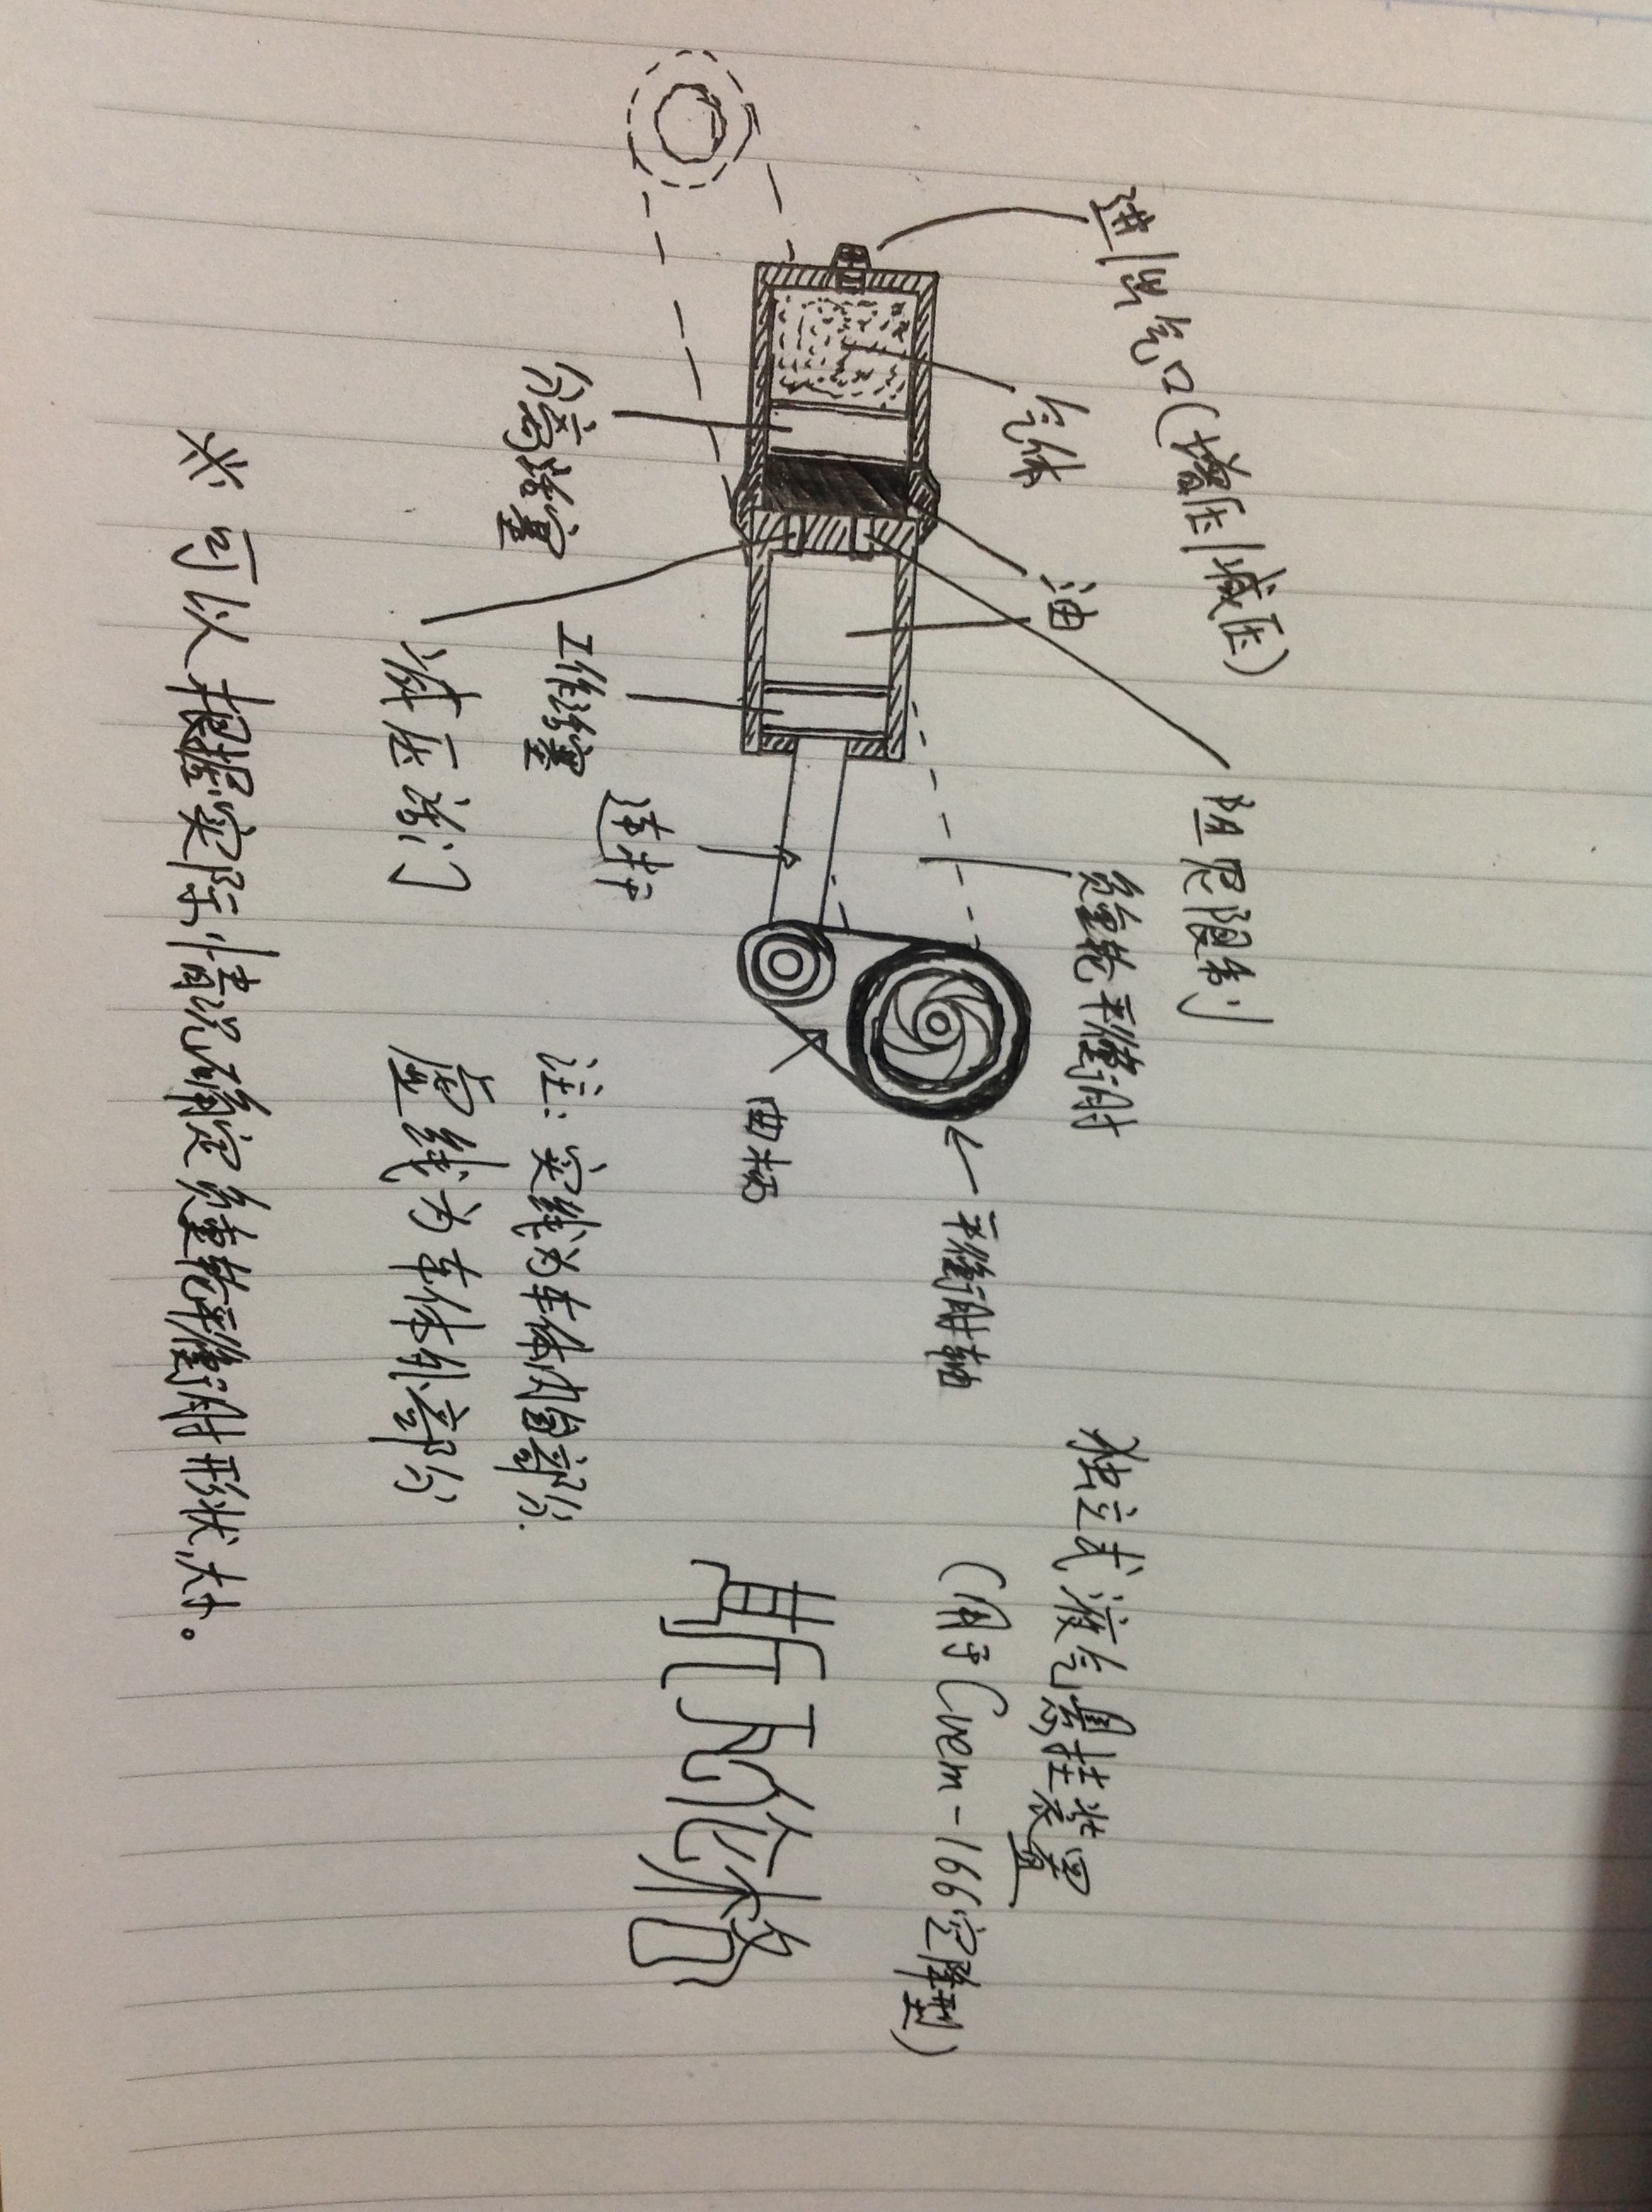 进/出气口(增压/减压)
气体
油
阻尼限制
负重轮平衡肘
平衡肘轴
分离活塞
工作活塞
连杆
曲柄
减压活门
独立式液气悬挂装置
(用于Crem-166空降型)
斯瓦伦格
注:实线为车体内部部分.
虚线为车体外部部分
※可以根据实际情况确定负重轮平衡肘形状、大小。